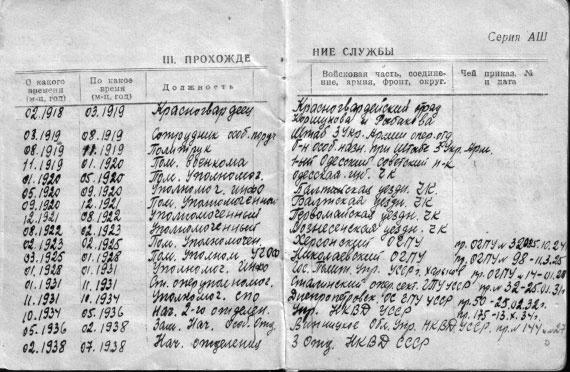 Серия АШ
III. ПРОХОЖДЕНИЕ СЛУЖБЫ
О какого времени (м-ц, год) По какое время (м-ц, год) Должность Войсковая часть, соединение, армия, фронт, округ. Чей приказ, № и дата
02.1918 03.1919 Красногвардеец Красногвардейский отряд
Коршунова и Рыбакова
03.1919 08.1919 Сотрудник особ. поруч. Штаб 3 Укр. Армии опер. отд
08.1919 11.1919 Политрук б-н особ. назн. при Штабе 3 Укр. Арм.
11.1919 01.1920 Пом. Военкома 1-ый Одесский советский п-к
01.1920 05.1920 Пом. Уполномоч. Одесская губ. ЧК
05.1920 09.1920 Уполномоч. инфо Балтская уездн. ЧК
09.1920 12.1921 Пом. Уполномоченный Балтская уездн. ЧК
12.1921 08.1922 Уполномоченный Первомайская уездн. ЧК
08.1922 02.1923 Уполномоченный Вознесенская уездн. ЧК
02.1923 02.1925 Пом. Уполномочен. Херсонский ОГПУ пр. ОГПУ №
03.1925 01.1928 Пом. Уполном Николаевский ОГПУ пр. ОГПУ № 98-11.3.25
01.1928 01.1931 Уполномоч. Инфо УССР г. Харьков пр. ОГПУ № 14-
01.1931 11.1931 Ст. оперуполномоч. Сталинский опер. сект. ГПУ УССР пр. № 32-25.01.31г
11.1931 10.1934 Уполномоч. СПО Днепропетровск. ОС ГПУ УССР пр. 50-25.02.32г.
10.1934 05.1936 Нач. 2-го отделен. Упр. НКВД УССР пр. 175-13.X.34г.
05.1936 02.1938 Зам. Нач. Особ. Отд. Винницкое Обл. Упр. НКВД УССР. пр. № 144
02.1938 07.1938 Нач. отделения 3 Отд. НКВД СССР